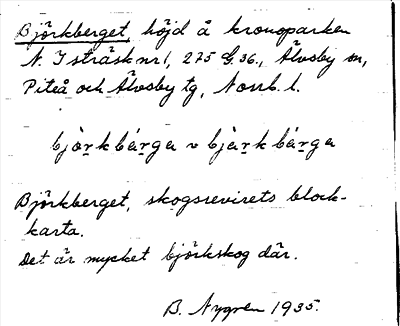 Björkberget, höjd å kronoparken
N. Isträsk nr 1, 275 G. 36., Älvsby sn,
Piteå och Älvsby tg, Norrb. l.
bjö̀r̥kbár̥ga v bjär̥kbár̥ga
Björkberget, skogsrevirets block-
karta.
Det är mycket björkskog där.
B. Nygren 1935.